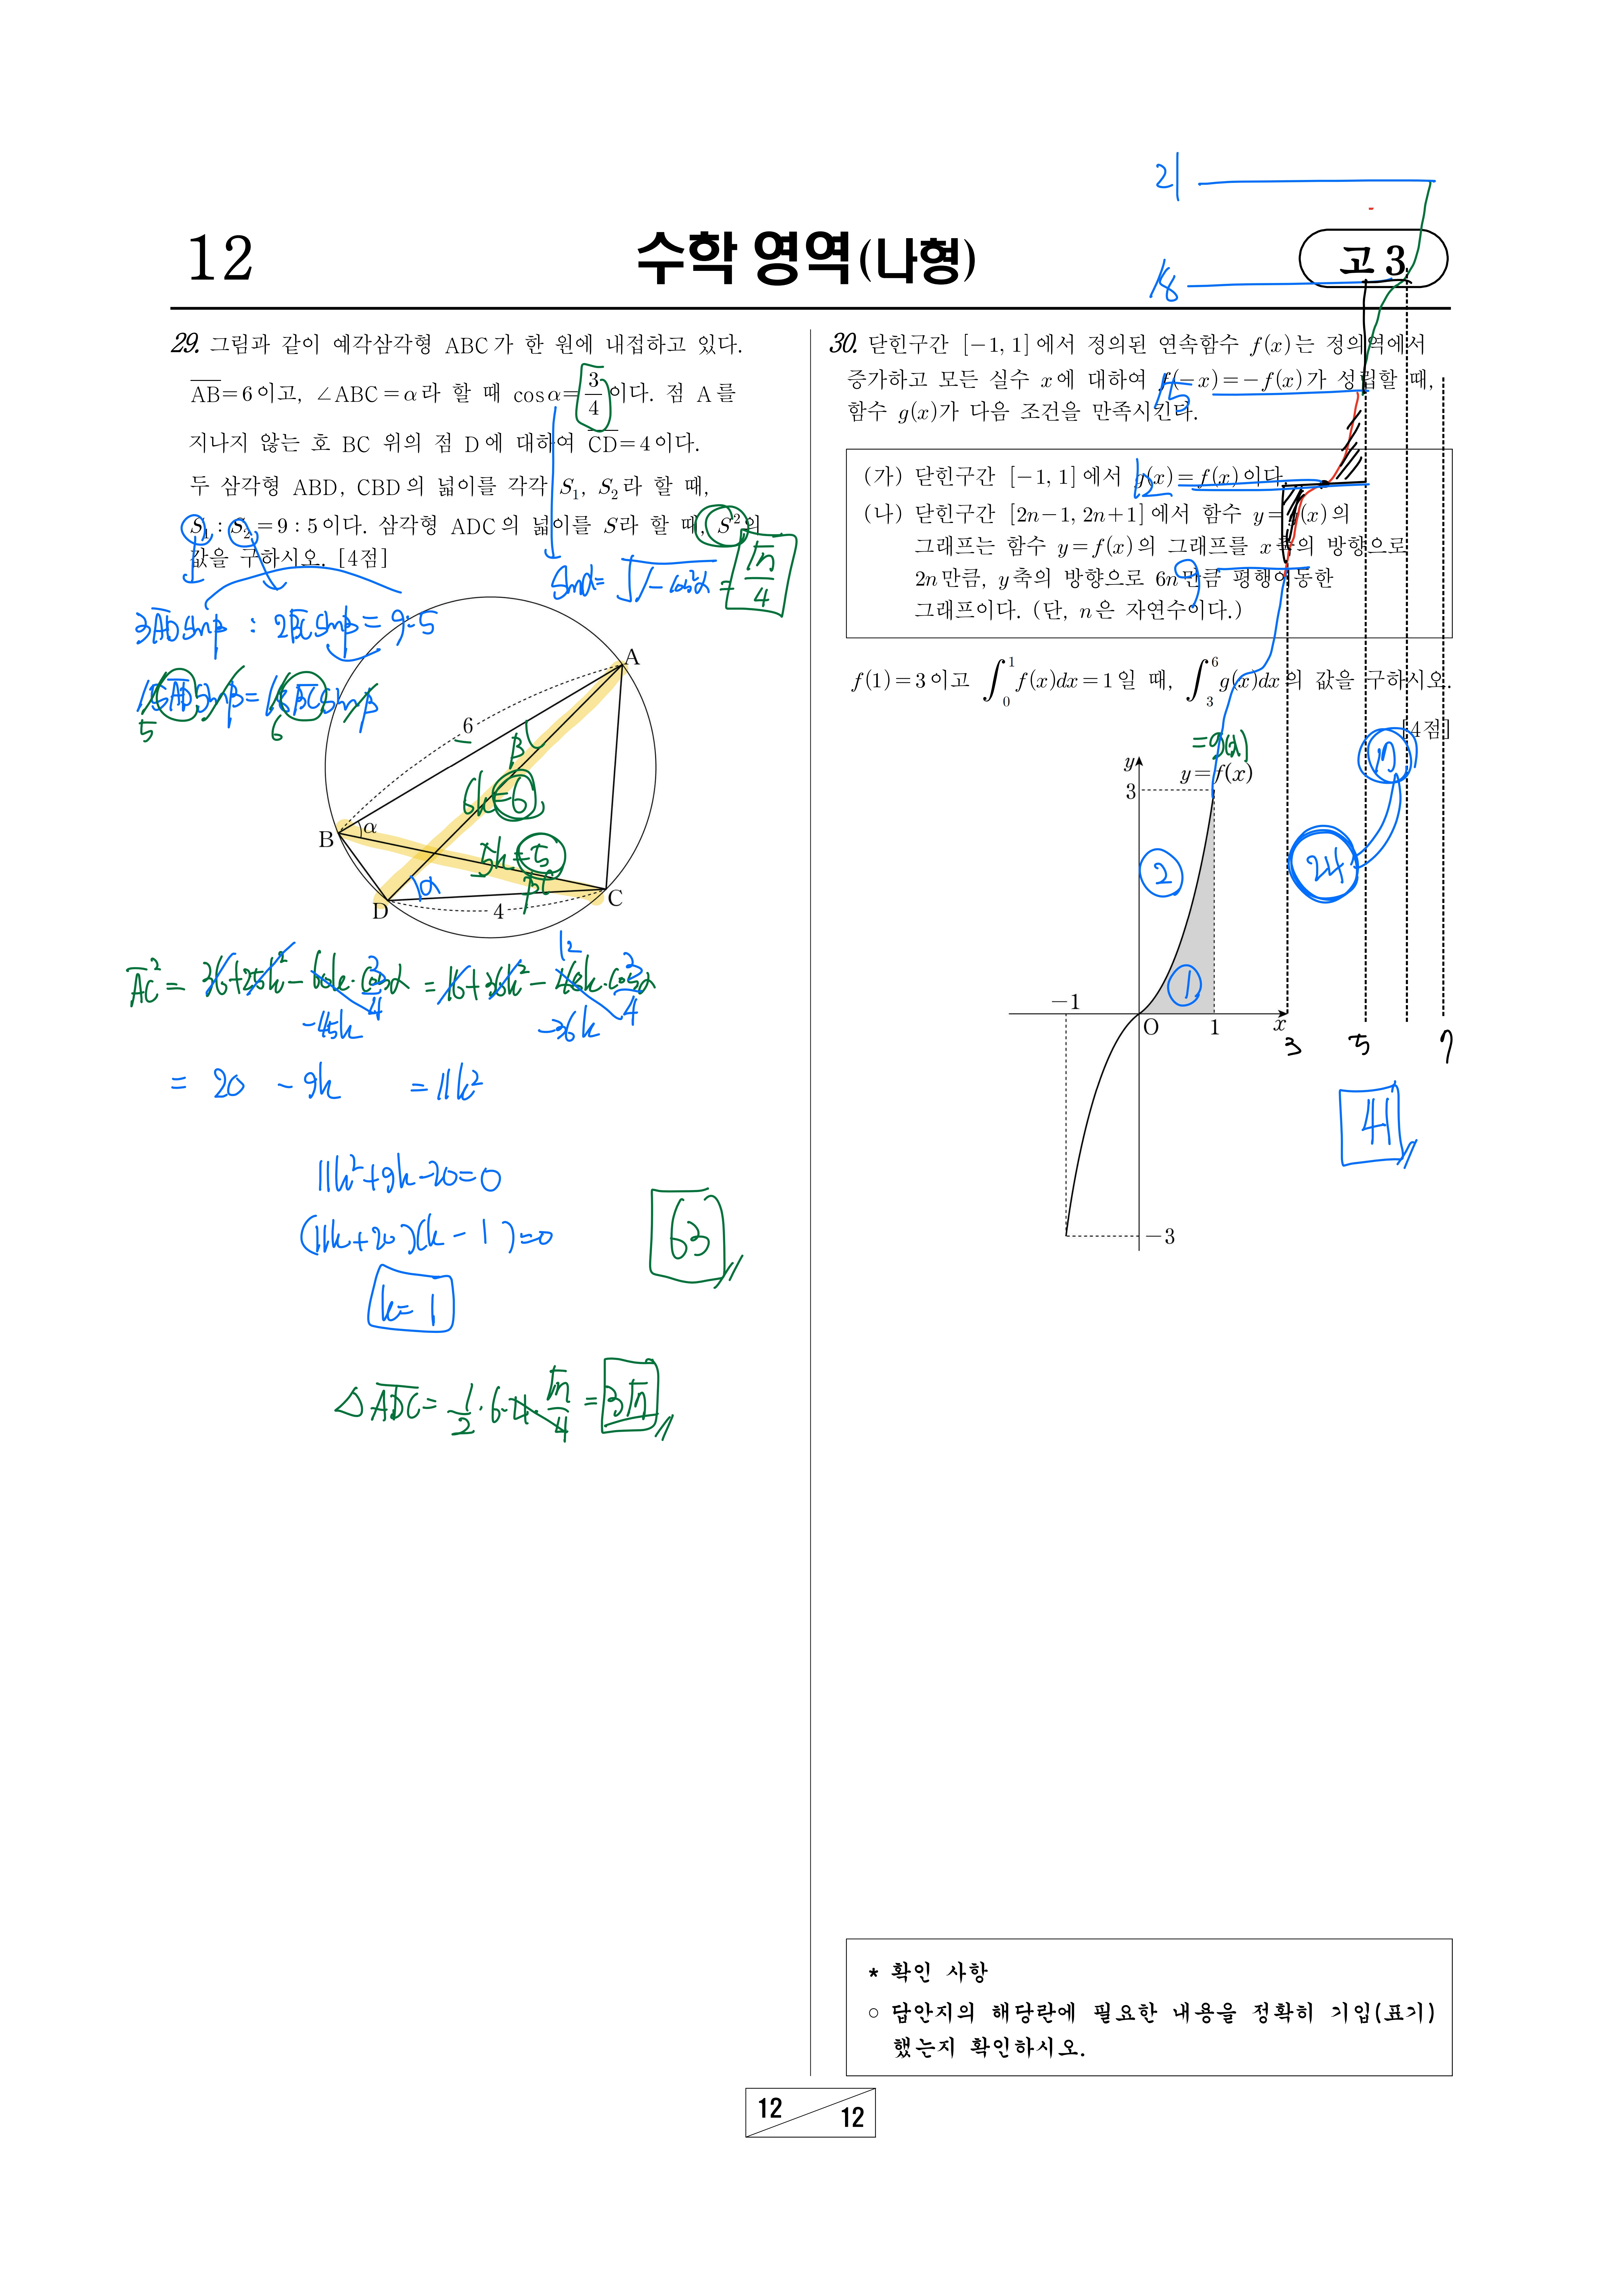 12
수학 영역(나형)
고 3
21
18
29. 그림과 같이 예각삼각형 ABC가 한 원에 내접하고 있다.
AB=6이고, ∠ABC=α라 할 때 cosα=3/4이다. 점 A를
지나지 않는 호 BC 위의 점 D에 대하여 CD=4이다.
두 삼각형 ABD, CBD의 넓이를 각각 S₁, S₂라 할 때,
S₁ : S₂=9 : 5이다. 삼각형 ADC의 넓이를 S라 할 때, S²의
값을 구하시오. [4점]
sinα=√1-cos²α=√7/4
3AD sinβ : 2BC sinβ=9:5
15AD sinβ=18BC sinβ
5
6
A
6
β
6k=6
B
α
5k=5
α
D
4
C
AC²=36+25k²-60k·cosα=16+36k²-48k·cosα
3/4
-45k
12
3/4
-36k
= 20 -9k =11k²
11k²+9k-20=0
(11k+20)(k-1)=0
k=1
63
△ADC=1/2·6·4·√7/4=3√7
30. 닫힌구간 [-1, 1]에서 정의된 연속함수 f(x)는 정의역에서
증가하고 모든 실수 x에 대하여 f(-x)=-f(x)가 성립할 때,
함수 g(x)가 다음 조건을 만족시킨다.
15
(가) 닫힌구간 [-1, 1]에서 g(x)=f(x)이다.
12
(나) 닫힌구간 [2n-1, 2n+1]에서 함수 y=g(x)의
그래프는 함수 y=f(x)의 그래프를 x축의 방향으로
2n만큼, y축의 방향으로 6n만큼 평행이동한
그래프이다. (단, n은 자연수이다.)
9
f(1)=3이고 ∫₀¹f(x)dx=1일 때, ∫₃⁶g(x)dx의 값을 구하시오.
[4점]
=g(x)
y=f(x)
y
3
17
24
2
1
-1
O
1
x
3
5
7
-3
41
* 확인 사항
○ 답안지의 해당란에 필요한 내용을 정확히 기입(표기)
했는지 확인하시오.
12
12